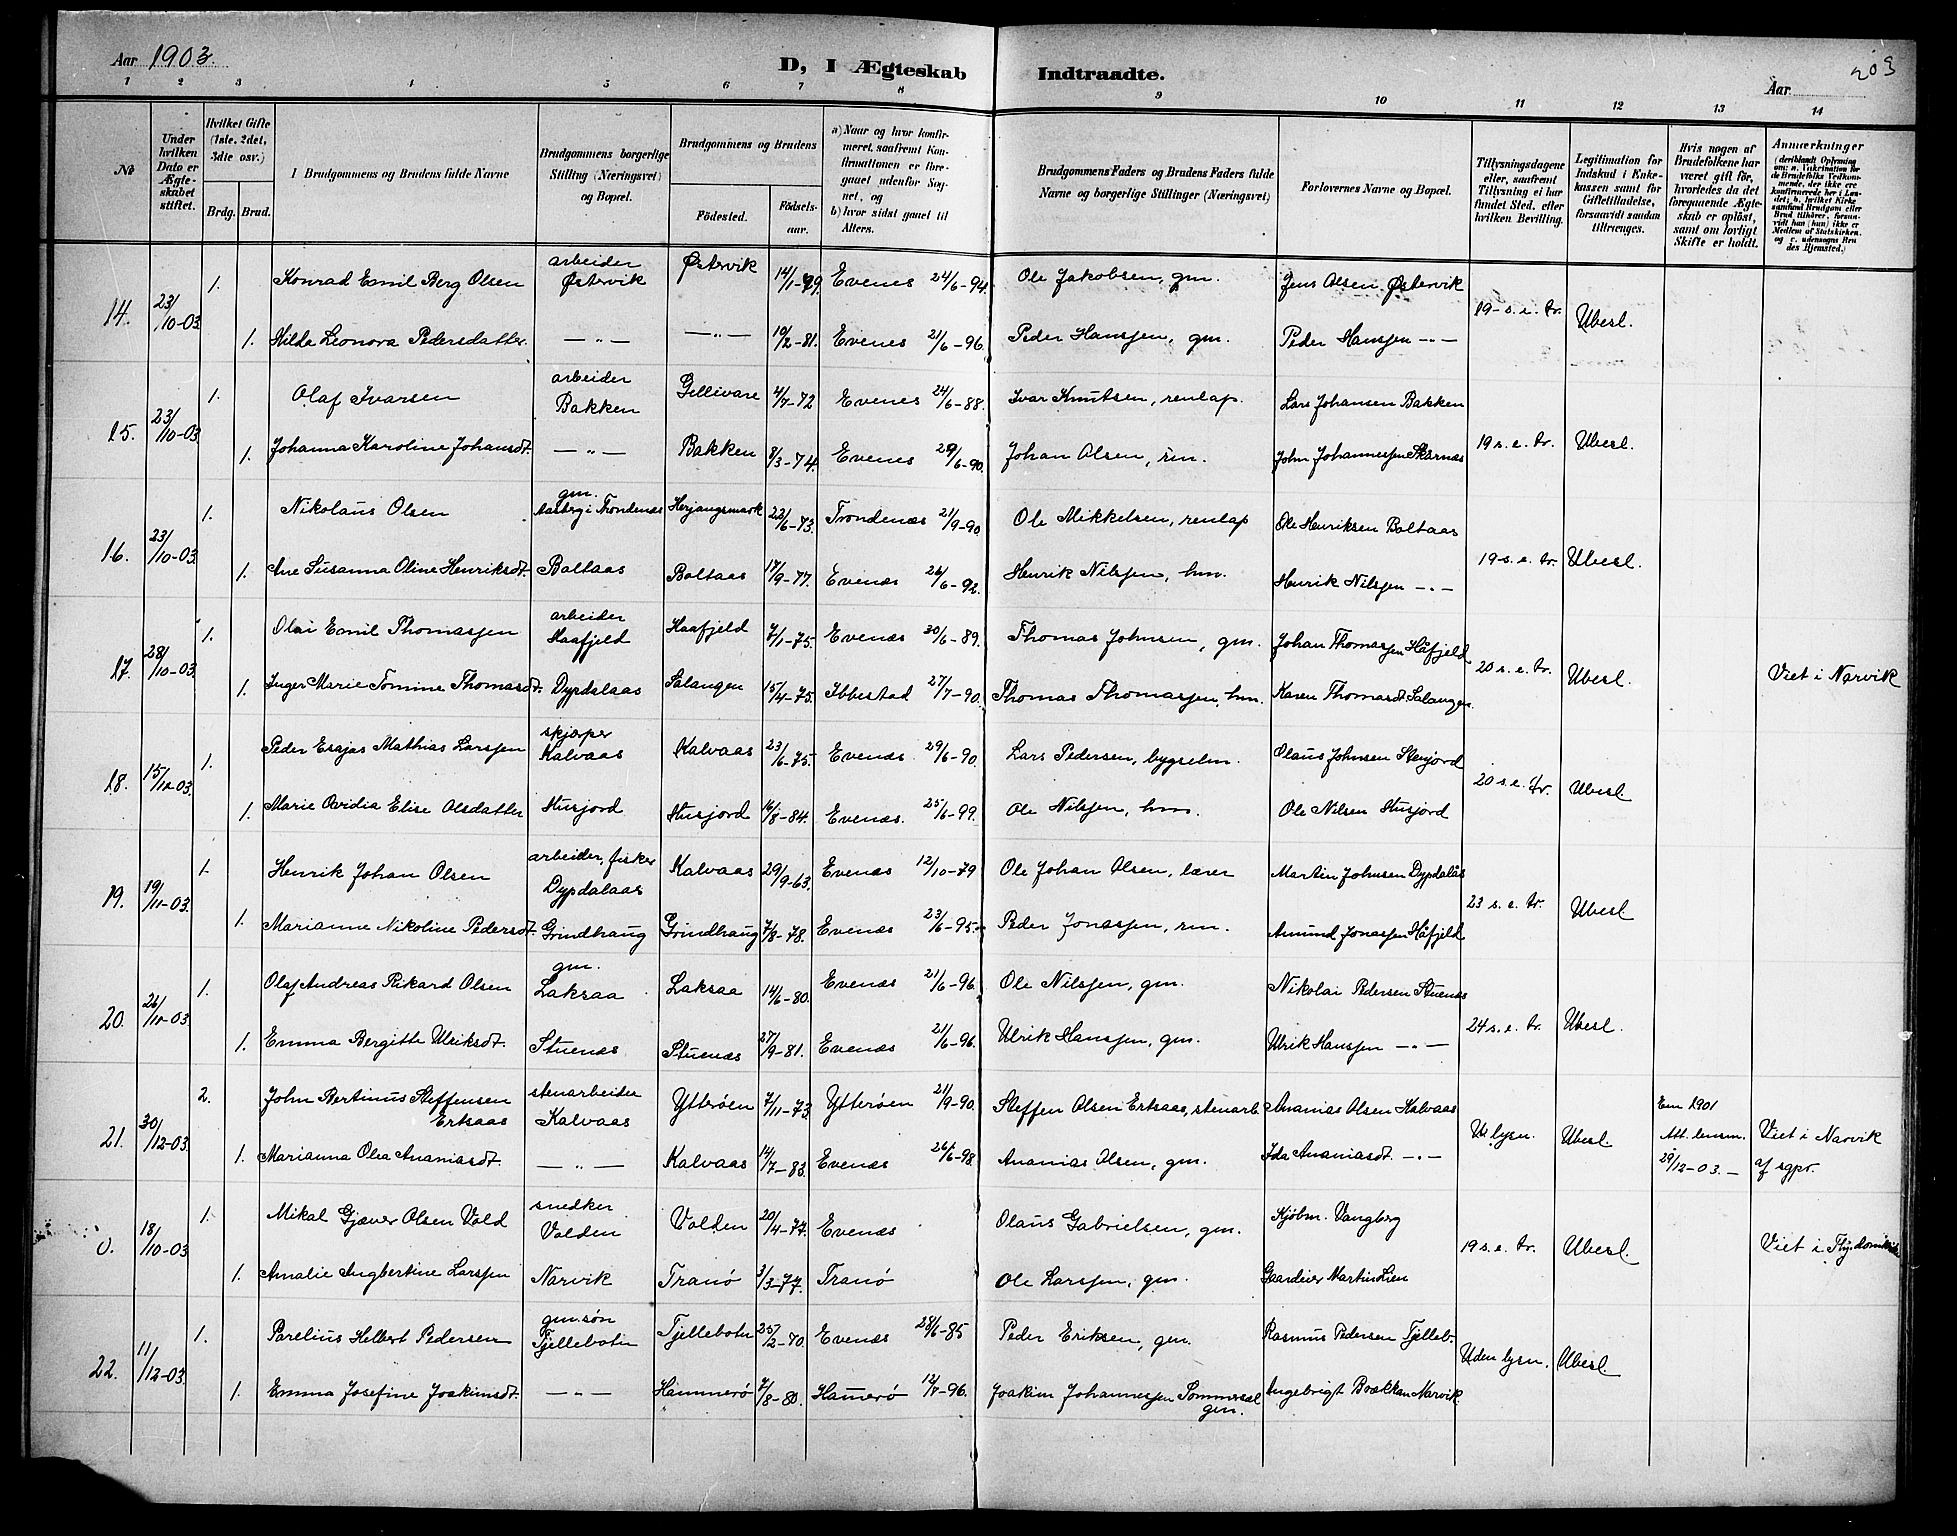 Aar 1903.
D, I Ægteskab Indtraadte.
203
Aar
1 2 3 4 5 6 7 8 9 10 11 12 13 14
No
Under hvilken Dato er Ægteskabet stiftet.
Hvilket Gifte (1ste, 2det, 3die osv.)
Brdg. Brud.
I Brudgommens og Brudens fulde Navne
Brudgommens borgerlige Stilling (Næringsvei) og Bopæl.
Brudgommens og Brudens
Födested.
Födselsaar.
a) Naar og hvor konfirmeret, saafremt Konfirmationen er foregaaet udenfor Sognet, og
b) hvor sidst gaaet til Alters.
Brudgommens Faders og Brudens Faders fulde Navne og borgerlige Stillinger (Næringsvei)
Forlovernes Navne og Bopæl.
Tillysningsdagene eller, saafremt Tillysning ei har fundet Sted, efter hvilken Bevilling.
Legitimation for Indskud i Enkekassen samt for Giftetilladelse, forsaavidt saadan tiltrænges.
Hvis nogen af Brudefolkene har været gift för, hvorledes da det foregaaende Ægteskab er oplöst, samt om lovligt Skifte er holdt.
Anmærkninger
14. 23/10-03 1. Konrad Emil Berg Olsen arbeider Østervik Østervik 14/1-79. Evenes 24/6-94 Ole Jakobsen, gm. Jens Olsen Østervik 19-s.e.tr. Ubesl.
1. Hilda Leonora Pedersdatter. — " — — " — 19/2-81. Evenes 21/6-96. Peder Hanssen, gm. Peder Hanssen — " —
15. 23/10-03 1. Olaf Ivarsen arbeider Bakken Gellivare 4/7-72 Evenes 24/6-88. Ivar Knutsen, renlap. Lars Johansen Bakken 19 s.e.tr. Ubesl.
1. Johanna Karoline Johansdt. — " — Bakken 8/3-74. Evenes 29/6-90. Johan Olsen, rm. John Johannessen Skarnæs
16. 23/10-03 1. Nikolaus Olsen gm. i Trondenæs Herjangsmark 22/6-73. Trondenæs 21/9-90. Ole Mikkelsen, renlap Ole Henriksen Boltaas 19-s.e.tr. Ubesl.
1. Ane Susanna Oline Henriksdt. Boltaas Boltaas 17/9-77. Evenæs 26/6-92. Henrik Nilssen, hm. Henrik Nilssen — " —
17. 28/10-03 1. Olai Emil Thomassen arbeider Haafjeld Haafjeld 7/1-75. Evenæs 30/6-89. Thomas Johnsen, gm. Johan Thomassen Håfjeld 20 s.e.tr. Ubesl. Viet i Narvik
1. Inger Marie Tomine Thomasdt. Dypdalaas Salangen 15/4-75. Ibbestad 27/7-90. Thomas Thomassen, hm. Karen Thomasdt. Salangen
18. 15/12-03. 1. Peder Esajas Mathias Larssen skjøper Kalvaas Kalvaas 23/6-75. Evenæs 29/6-90. Lars Pedersen, bygselm. Olaus Johnsen Stenjord 20 s.e.tr. Ubesl
1. Marie Ovidia Elise Olsdatter Husjord Husjord 16/8-84. Evenæs. 25/6-99. Ole Nilssen, hm. Ole Nilsen Husjord
19. 19/11-03. 1. Henrik Johan Olsen arbeider, fisker Dypdalaas Kalvaas 29/9-63. Evenæs 12/10-79 Ole Johan Olsen, lærer Martin Johnsen Dypdalås 23 s.e.tr. Ubesl
1. Marianne Nikoline Pedersdt. Grindhaug Grindhaug 7/8-78. Evenæs 23/6-95. Peder Jonassen, rm. Amund Jonassen Håfjeld
20. 26/11-03. 1. Olaf Andreas Rikard Olsen gm. Laksaa Laksaa 14/6-80. Evenæs 21/6-96. Ole Nilssen, gm. Nikolai Pedersen Stuenæs 24 s.e.tr. Ubesl.
1. Emma Bergitte Ulriksdt. Stuenæs. Stuenæs 27/9-81. Evenæs 21/6-96. Ulrik Hanssen, gm. Ulrik Hanssen — " —
21. 30/12-03. 2. John Bertinus Steffensen Ertsaas stenarbeider Kalvaas Ytterøen 7/11-73. Ytterøen 21/9-90. Steffen Olsen Ertsaas, stenarb. Ananias Olsen Kalvaas U. lysn. Ubesl. Em 1901 Att. lensm. 29/12-03.- Viet i Narvik af sgpr.
1. Marianna Olea Ananiasdt. — " — Kalvaas 14/7-83. Evenæs 26/6-98. Ananias Olsen, gm. Ida Ananiasdt. — " —
0. 18/10-03 1. Mikal Gjæver Olsen Vold snedker Volden Volden 20/4-77. Evenæs Olaus Gabrielsen, gm. Kjøbm. Vangberg 19 s.e.tr. Ubesl. Viet i
1. Amalie Ingbertine Larssen Narvik Tranö 3/3-77. Tranö Ole Larssen, gm. Gaardeier Martin Lien
22. 11/12-03. 1. Parelius Helbert Pedersen gm.søn Tjellebotn Tjellebotn 25/2-70. Evenæs 28/6-85 Peder Eriksen, gm. Rasmus Pedersen Tjelleb. Uden lysn. Ubesl.
1. Emma Josefine Joakimsdt. — " — Hammerö 7/8-80. Hamerö 12/8-96. Joakim Johannessen Sommersæl gm. Ingebrigt Brækkan Narvik.